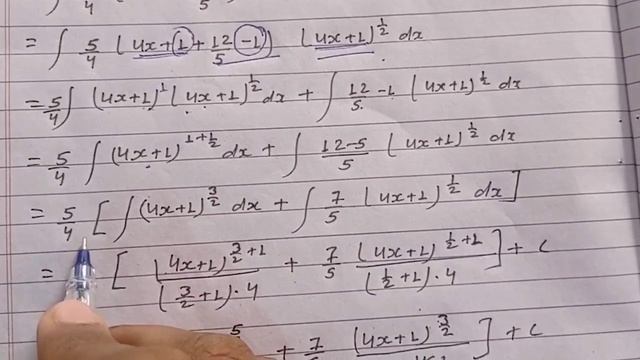 5
= ∫ 5/4 (4x+1+12/5-1) (4x+1)^1/2 dx
= 5/4 ∫ (4x+1)^1 (4x+1)^1/2 dx + ∫ 12/5 - 1 (4x+1)^1/2 dx
= 5/4 ∫ (4x+1)^1+1/2 dx + ∫ 12-5/5 (4x+1)^1/2 dx
= 5/4 [∫ (4x+1)^3/2 dx + ∫ 7/5 (4x+1)^1/2 dx]
= [(4x+1)^3/2+1/(3/2+1)·4 + 7/5 (4x+1)^1/2+1/(1/2+1)·4] + c
5 + 7/5 (4x+1)^3/2] + c